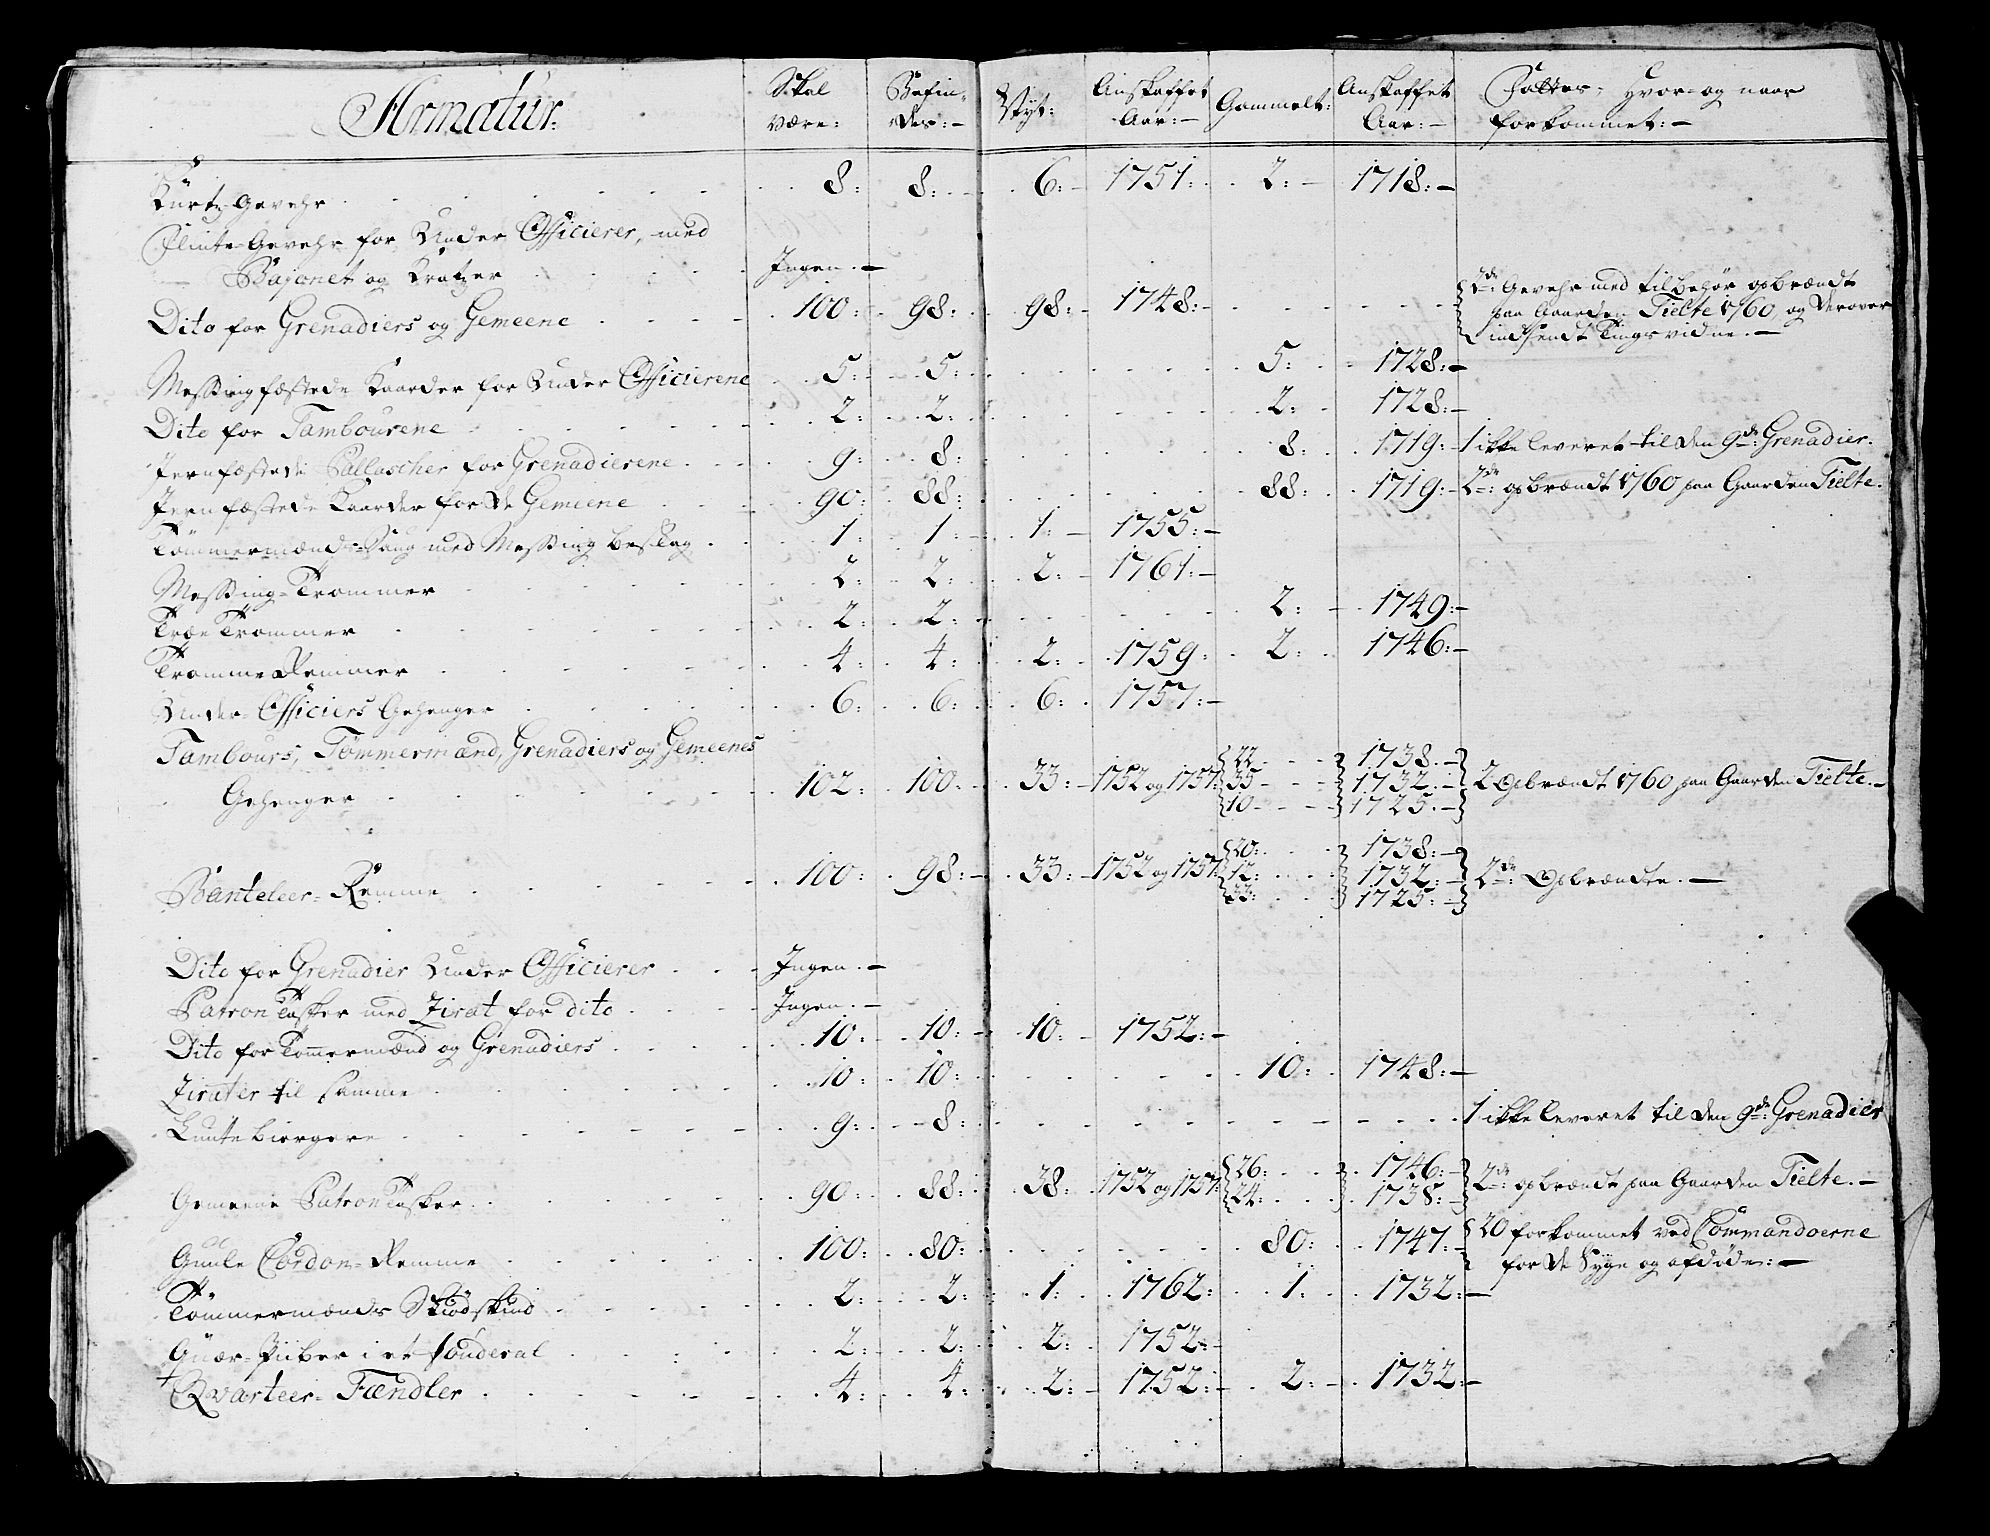 Armatur: Skal være: Befindes:- Nyt: Anskaffet Aar:- Gammelt: Anskaffet Aar:- Fattes, Hvor- og naar forkommet:-
Kurtz-Gevehr 8: 8: 6:- 1751: 2:- 1718:-
Flinte-Gevehr for Under Officierer, med
Bajonet og Kratzer Ingen.-
Dito for Grenadiers og Gemeene 100: 98: 98:- 1748:- 2de: Gevehr med tilbehør opbrændt
paa Gaarden Tielte 1760 og derover
indsendt Tingsvidne.-
Messing fæstede Kaarder for Under Officierene 5: 5: 5: 1728:-
Dito for Tambourene 2: 2: 2: 1728:-
Jernfæstede Pallascher for Grenadierene 9: 8: 8: 1719:- 1 ikke leveret til den 9de: Grenadier:
Jernfæstede Kaarder for de Gemeene 90: 88: 88: 1719:- 2de: opbrændt 1760 paa Gaarden Tielte.
Tømmermænds-Saug med Messing beslag 1: 1: 1:- 1755:-
Messing-Trommer 2: 2: 2:- 1761:-
Træe Trommer 2: 2: 2:- 1749:-
Tromme Remmer 4: 4: 2: 1759: 2: 1746:-
Under-Officiers Gehenger 6: 6: 6: 1757:-
Tambours, Tømmermænd, Grenadiers og Gemeenes
Gehenger 102: 100: 33:- 1752 og 1757: 22 1738.-
35 1732.-
10 1725.- 2 Opbrændt 1760 paa Gaarden Tielte.-
Banteleer-Remme 100: 98:- 33: 1752 og 1757: 20: 1738:-
12: 1732:-
33: 1725:- 2de: Opbrændte.-
Dito for Grenadier Under Officierer Ingen.-
Patron Tasker med Zirat for dito Ingen.-
Dito for Tømmermænd og Grenadiers 10: 10:- 10:- 1752:-
Zirater til samme 10: 10: 10: 1748:-
Luntebiergere 9: 8: 1 ikke leveret til den 9de: Grenadier
Gemeene Patron Tasker 90: 88: 38: 1752 og 1757: 26: 1746:-
24: 1738:- 2de: opbrændt paa Gaarden Tielte.-
Guule Cordon-Remme 100: 80: 80: 1747:- 20 forkommet ved Commandoerne
for de Syge og afdøde:-
Tømmermænds Skiødskind 2: 2: 1: 1762: 1: 1732:-
Quær-Piiber i et fouderal 2: 2: 2: 1752:-
+ Qvarteer-Fændler 4: 4: 2:- 1752:- 2:- 1732:-